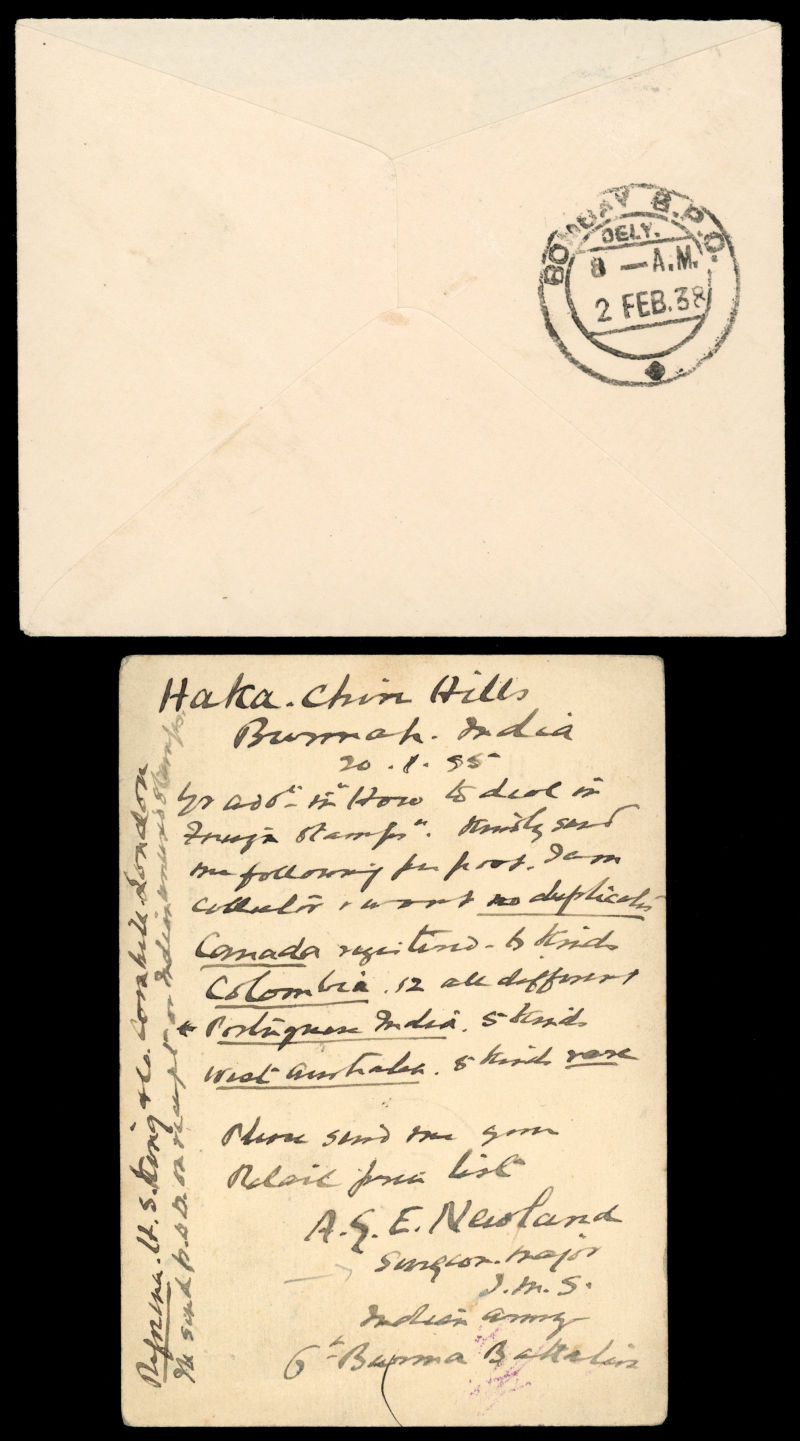 BOMBAY G.P.O.
DELY.
8 — A.M.
2 FEB. 38
Haka. Chin Hills
Burmah. India
20. 1. 95
Yr add^n in "How to deal in
Foreign Stamps". Kindly send
me following per post. I am
collector & want no duplicates
Canada registered - 6 Kinds
Colombia. 12 all different
Portuguese India. 5 Kinds
West Australia. 5 Kinds rare
Please send me your
Retail price list
A. G. E. Newland
Surgeon. Major
I. M. S.
Indian Army
6th Burma Battalion
Reference. H. S. King & Co. Cornhill London
send on receipt or Indian unused stamps.